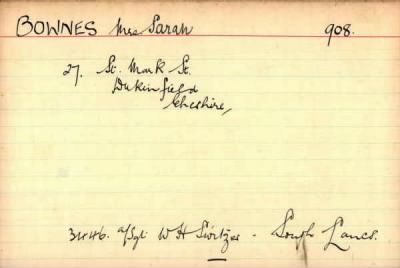 BOWNES Mrs Sarah 908.
27. St. Mark St.
Dukinfield
Cheshire,
3446. a/Sgt W H Switzer - South Lancs.